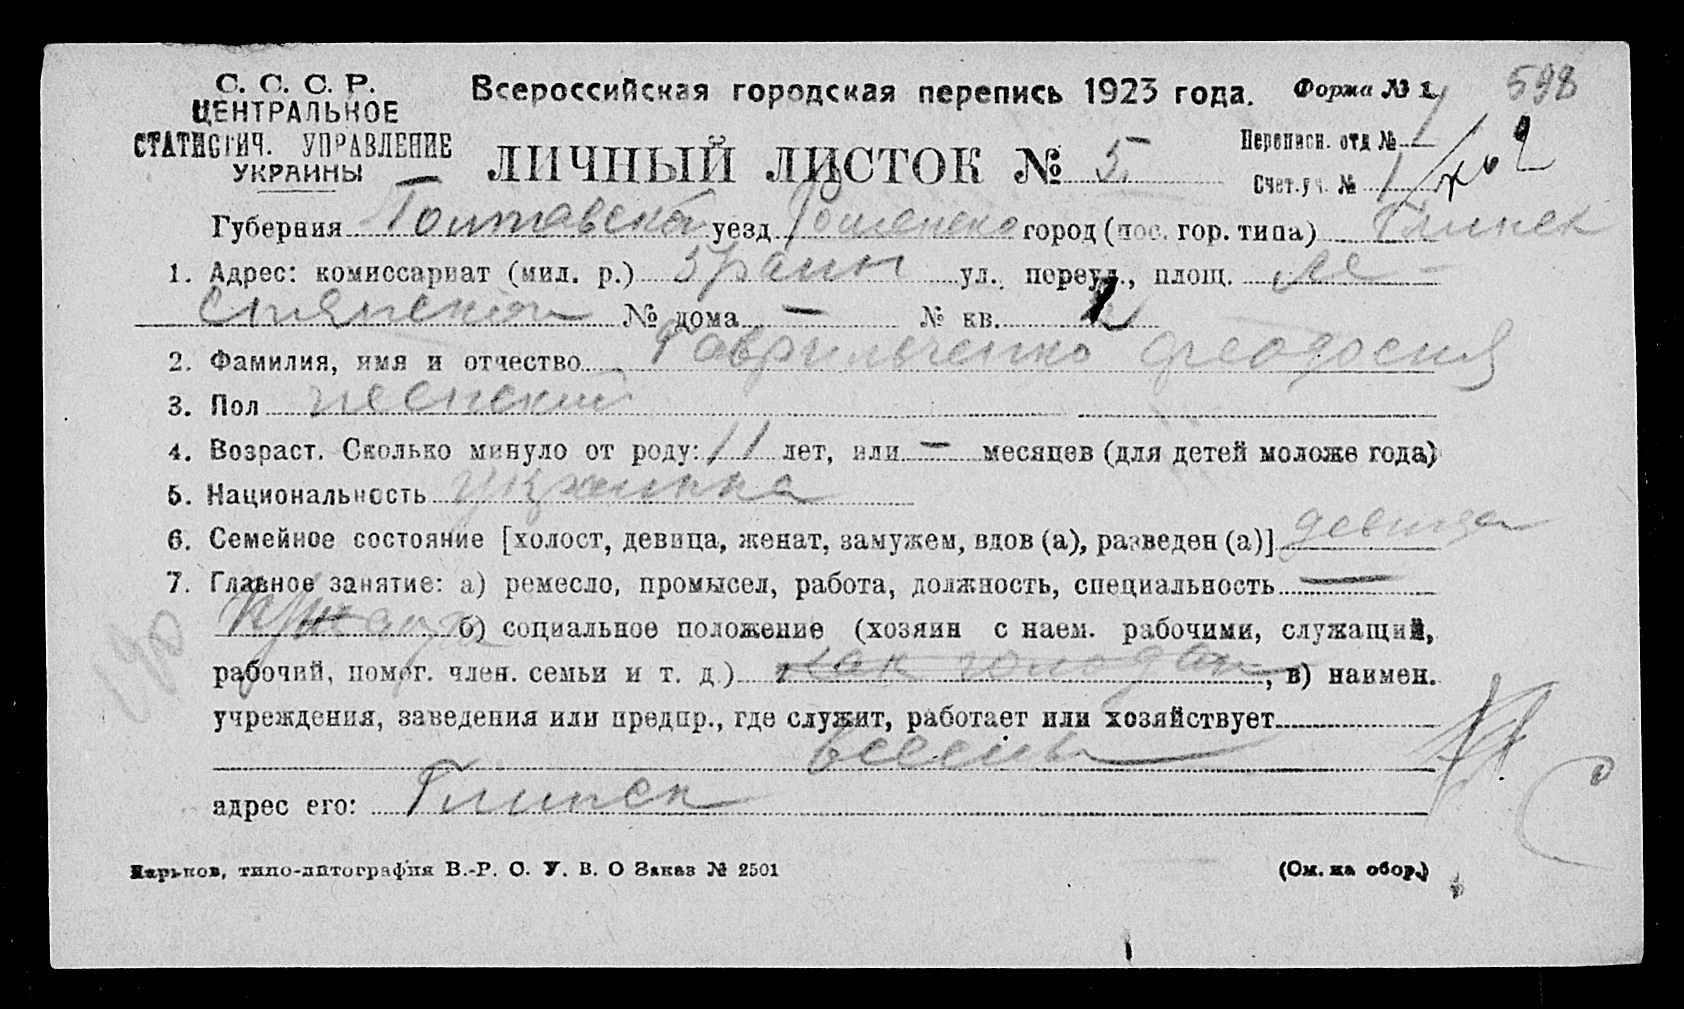 С. С. С. Р.
ЦЕНТРАЛЬНОЕ
СТАТИСТИЧ. УПРАВЛЕНИЕ
УКРАИНЫ
Всероссийская городская перепись 1923 года.
Форма № 1
598
ЛИЧНЫЙ ЛИСТОК № 5.
Переписн. отд № 1
Счет. уч. № 1
Губерния Полтавска уезд Роменско город (пос. гор. типа) Глинск
1. Адрес: комиссариат (мил. р.) ул., переул., площ.
№ дома — № кв.
2. Фамилия, имя и отчество Гаврильченко Феодосия
3. Пол женский
4. Возраст. Сколько минуло от роду: 11 лет, или — месяцев (для детей моложе года)
5. Национальность украинка
6. Семейное состояние [холост, девица, женат, замужем, вдов (а), разведен (а)] девица
7. Главное занятие: а) ремесло, промысел, работа, должность, специальность —
б) социальное положение (хозяин с наем. рабочими, служащий,
рабочий, помог. член. семьи и т. д.) , в) наимен.
учреждения, заведения или предпр., где служит, работает или хозяйствует
адрес его: Глинск
190
Харьков, типо-литография В.-Р. С. У. В. О Заказ № 2501
(См. на обор.)